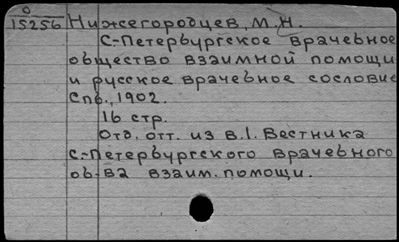 О
15256 Нижегородцев, М.Н.
С.-Петербургское врачебное
общество взаимной помощи
и русское врачебное сословие
Спб., 1902.
16 стр.
Отд. отт. из в.1. Вестника
С.-Петербургского врачебного
об-ва взаим. помощи.